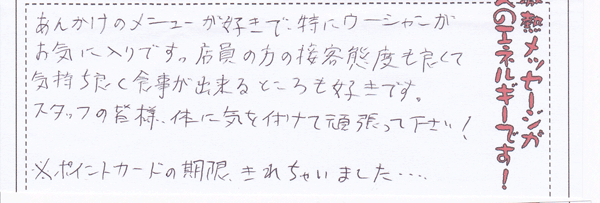 あんかけのメニューが好きで、特にウーシャンが
お気に入りです。店員の方の接客態度も良くて
気持ち良く食事が出来るところも好きです。
スタッフの皆様、体に気を付けて頑張って下さい!
※ポイントカードの期限、きれちゃいました‥‥
熱メッセージが
のエネルギーです!